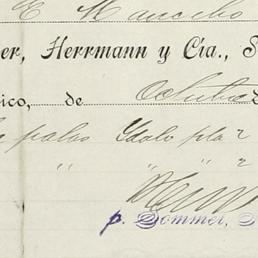 E. Mancebo
er, Herrmann y Cía., S
ico, de Octubre
palos Ydolo pla
" " " "
p. Sommer,